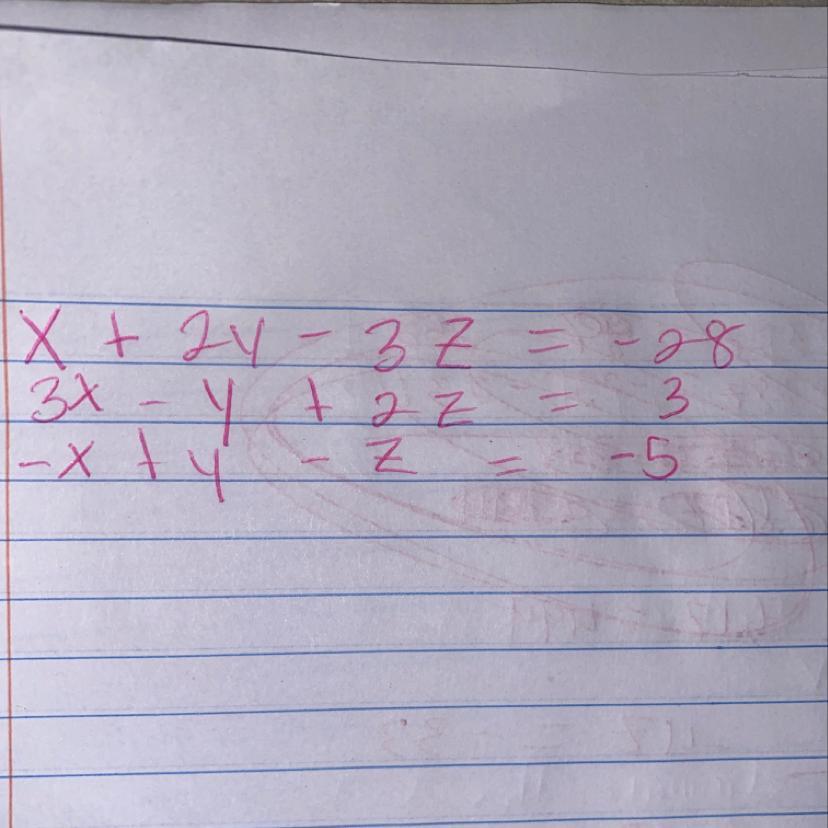 x + 2y - 3z = -28
3x - y + 2z = 3
-x + y - z = -5